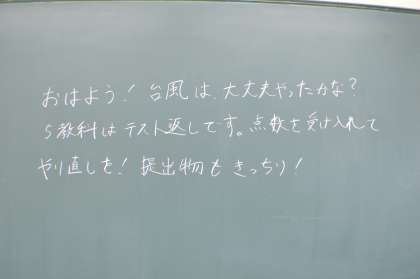 おはよう！台風は、大丈夫やったかな？
5教科はテスト返しです。点数を受け入れて
やり直しを！提出物もきっちり！